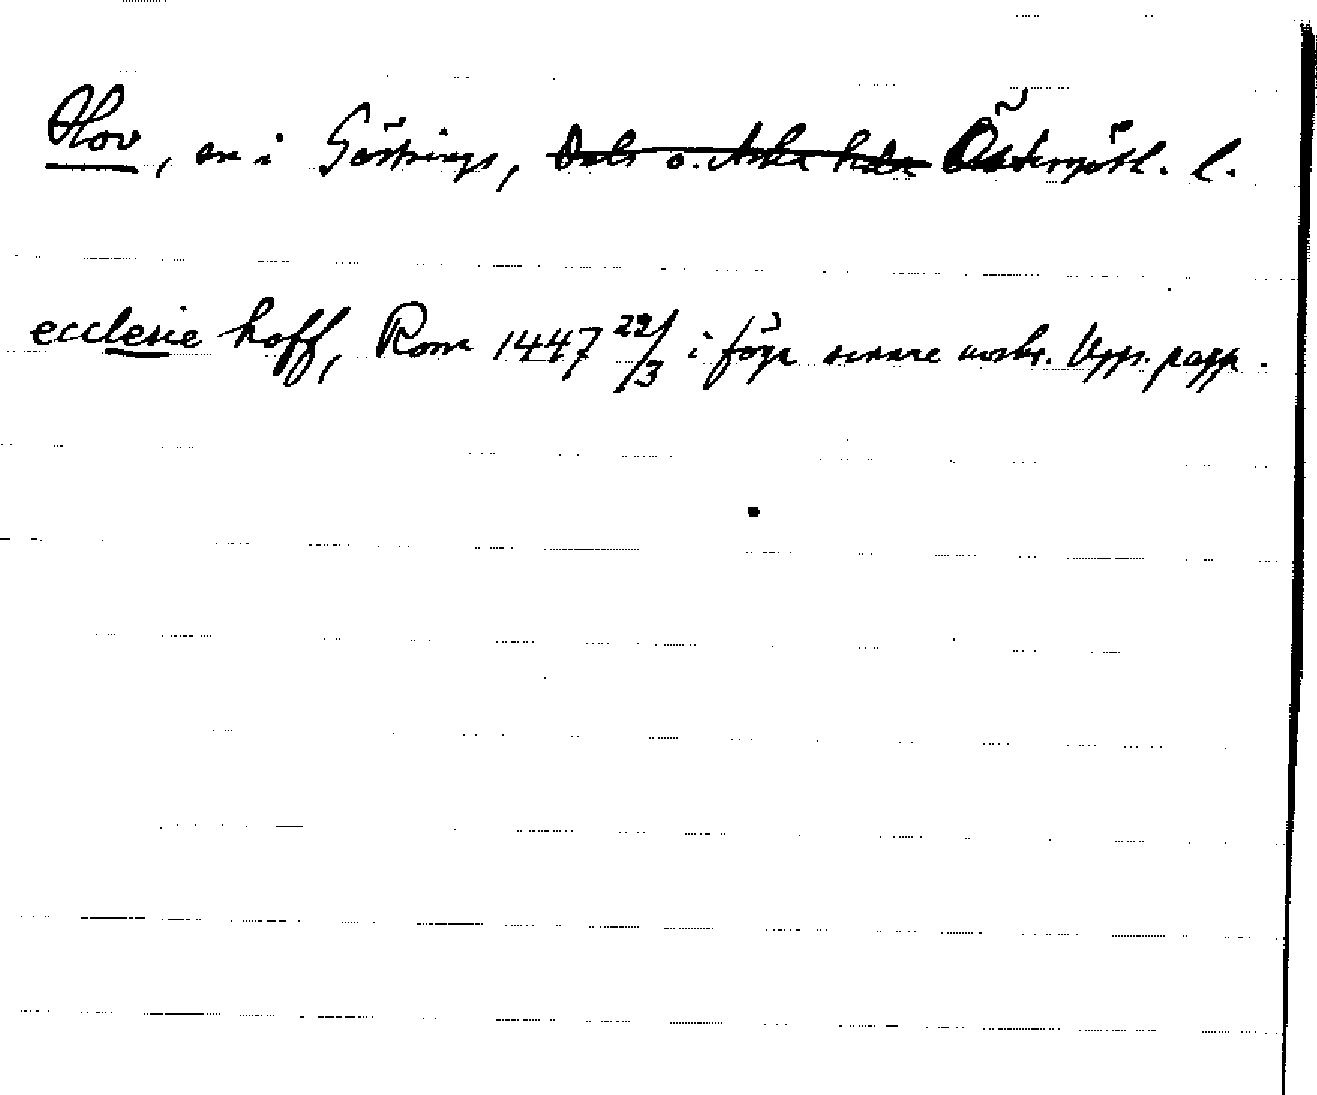 Hov, sn i Göstrings, ~~Dals o. Aska hdr~~ Östergötl. l.
ecclesie hoff, Rom 1447 22/3 i föga senare avskr. Upps. papp.